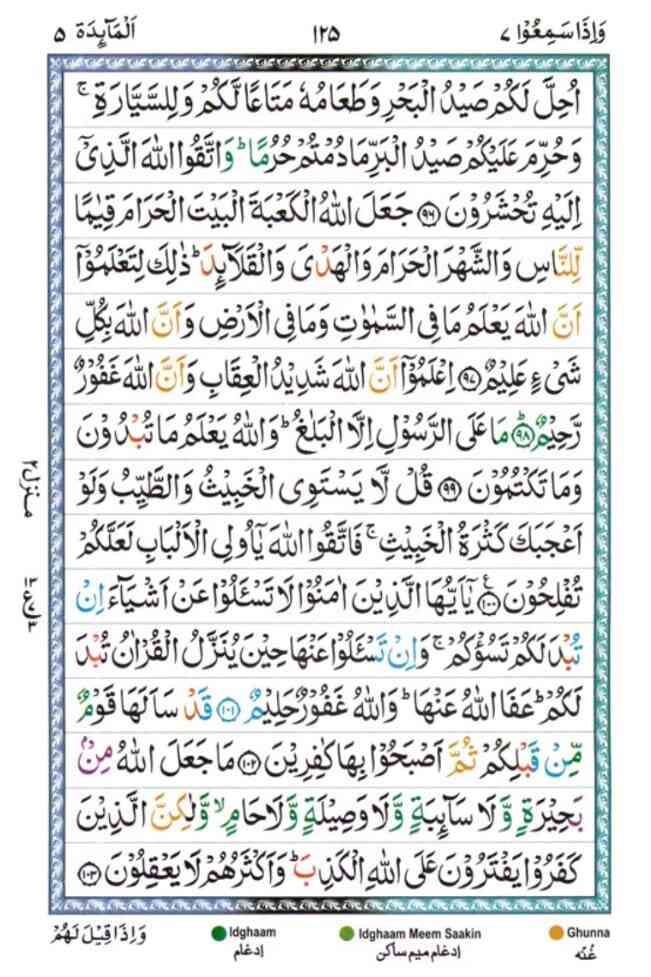 وَاِذَا سَمِعُوْا ٧
١٢٥
اَلْمَآئِدَة ٥
اُحِلَّ لَكُمْ صَيْدُ الْبَحْرِ وَطَعَامُهٗ مَتَاعًا لَّكُمْ وَلِلسَّيَّارَةِ ۚ
وَحُرِّمَ عَلَيْكُمْ صَيْدُ الْبَرِّ مَا دُمْتُمْ حُرُمًا ؕ وَاتَّقُوا اللّٰهَ الَّذِىْۤ
اِلَيْهِ تُحْشَرُوْنَ ﴿۹۶﴾ جَعَلَ اللّٰهُ الْكَعْبَةَ الْبَيْتَ الْحَرَامَ قِيٰمًا
لِّلنَّاسِ وَالشَّهْرَ الْحَرَامَ وَالْهَدْىَ وَالْقَلَآئِدَ ؕ ذٰلِكَ لِتَعْلَمُوْۤا
اَنَّ اللّٰهَ يَعْلَمُ مَا فِى السَّمٰوٰتِ وَمَا فِى الْاَرْضِ وَاَنَّ اللّٰهَ بِكُلِّ
شَىْءٍ عَلِيْمٌ ﴿۹۷﴾ اِعْلَمُوْۤا اَنَّ اللّٰهَ شَدِيْدُ الْعِقَابِ وَاَنَّ اللّٰهَ غَفُوْرٌ
رَّحِيْمٌ ؕ﴿۹۸﴾ مَا عَلَى الرَّسُوْلِ اِلَّا الْبَلٰغُ ؕ وَاللّٰهُ يَعْلَمُ مَا تُبْدُوْنَ
وَمَا تَكْتُمُوْنَ ﴿۹۹﴾ قُلْ لَّا يَسْتَوِى الْخَبِيْثُ وَالطَّيِّبُ وَلَوْ
اَعْجَبَكَ كَثْرَةُ الْخَبِيْثِ ۚ فَاتَّقُوا اللّٰهَ يٰۤاُولِى الْاَلْبَابِ لَعَلَّكُمْ
تُفْلِحُوْنَ ﴿۱۰۰﴾ يٰۤاَيُّهَا الَّذِيْنَ اٰمَنُوْا لَا تَسْـَٔلُوْا عَنْ اَشْيَآءَ اِنْ
تُبْدَ لَكُمْ تَسُؤْكُمْ ۚ وَاِنْ تَسْـَٔلُوْا عَنْهَا حِيْنَ يُنَزَّلُ الْقُرْاٰنُ تُبْدَ
لَكُمْ ؕ عَفَا اللّٰهُ عَنْهَا ؕ وَاللّٰهُ غَفُوْرٌ حَلِيْمٌ ﴿۱۰۱﴾ قَدْ سَاَلَهَا قَوْمٌ
مِّنْ قَبْلِكُمْ ثُمَّ اَصْبَحُوْا بِهَا كٰفِرِيْنَ ﴿۱۰۲﴾ مَا جَعَلَ اللّٰهُ مِنْۢ
بَحِيْرَةٍ وَّلَا سَآئِبَةٍ وَّلَا وَصِيْلَةٍ وَّلَا حَامٍ ۙ وَّلٰكِنَّ الَّذِيْنَ
كَفَرُوْا يَفْتَرُوْنَ عَلَى اللّٰهِ الْكَذِبَ ؕ وَاَكْثَرُهُمْ لَا يَعْقِلُوْنَ ﴿۱۰۳﴾
منزل ٢
وَاِذَا قِيْلَ لَهُمْ
Idghaam
إدغام
Idghaam Meem Saakin
إدغام ميم ساكن
Ghunna
غُنّه